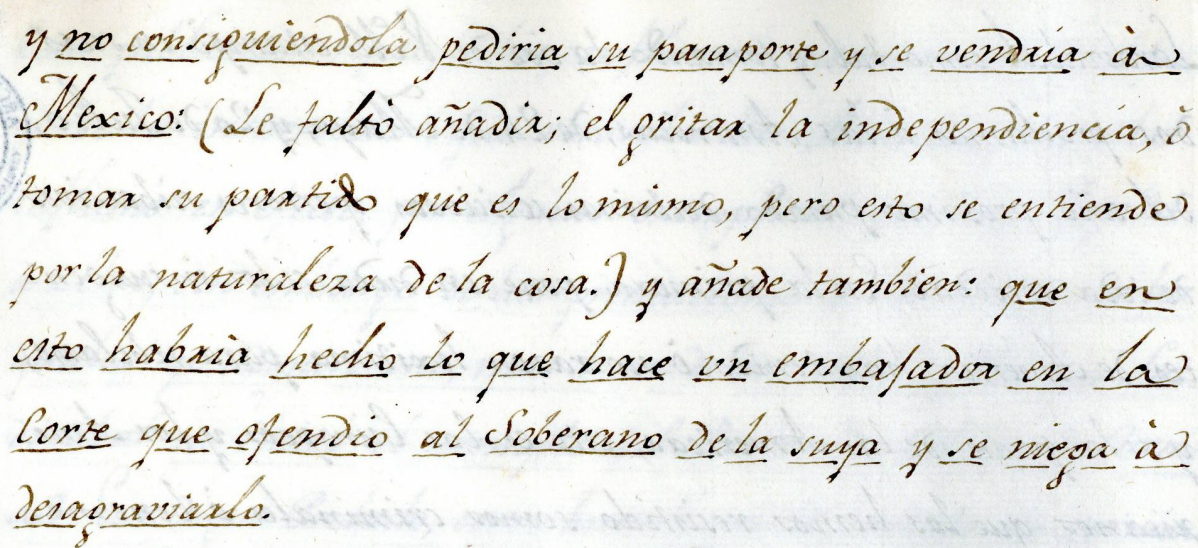 y no consiguiendola pediria su pasaporte y se vendria à
Mexico: (Le faltò añadir; el gritar la independiencia, ò
tomar su partido que es lo mismo, pero esto se entiende
por la naturaleza de la cosa.) y añade tambien: que en
esto habria hecho lo que hace un embajador en la
Corte que ofendio al Soberano de la suya y se niega à
desagraviarlo.